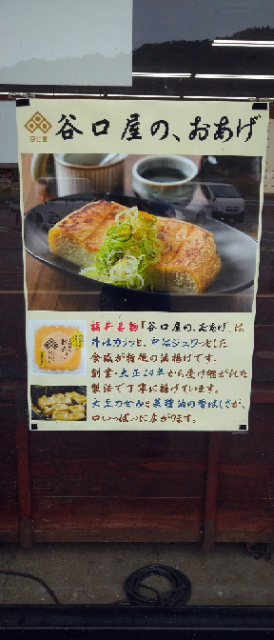 谷口屋
谷口屋の、おあげ
福井名物「谷口屋の、おあげ」は
外はカラッと、中はジュワーとした
食感が特徴の油揚げです。
創業・大正14年から受け継がれた
製法で丁寧に揚げています。
大豆の甘みと菜種油の香ばしさが、
口いっぱいに広がります。